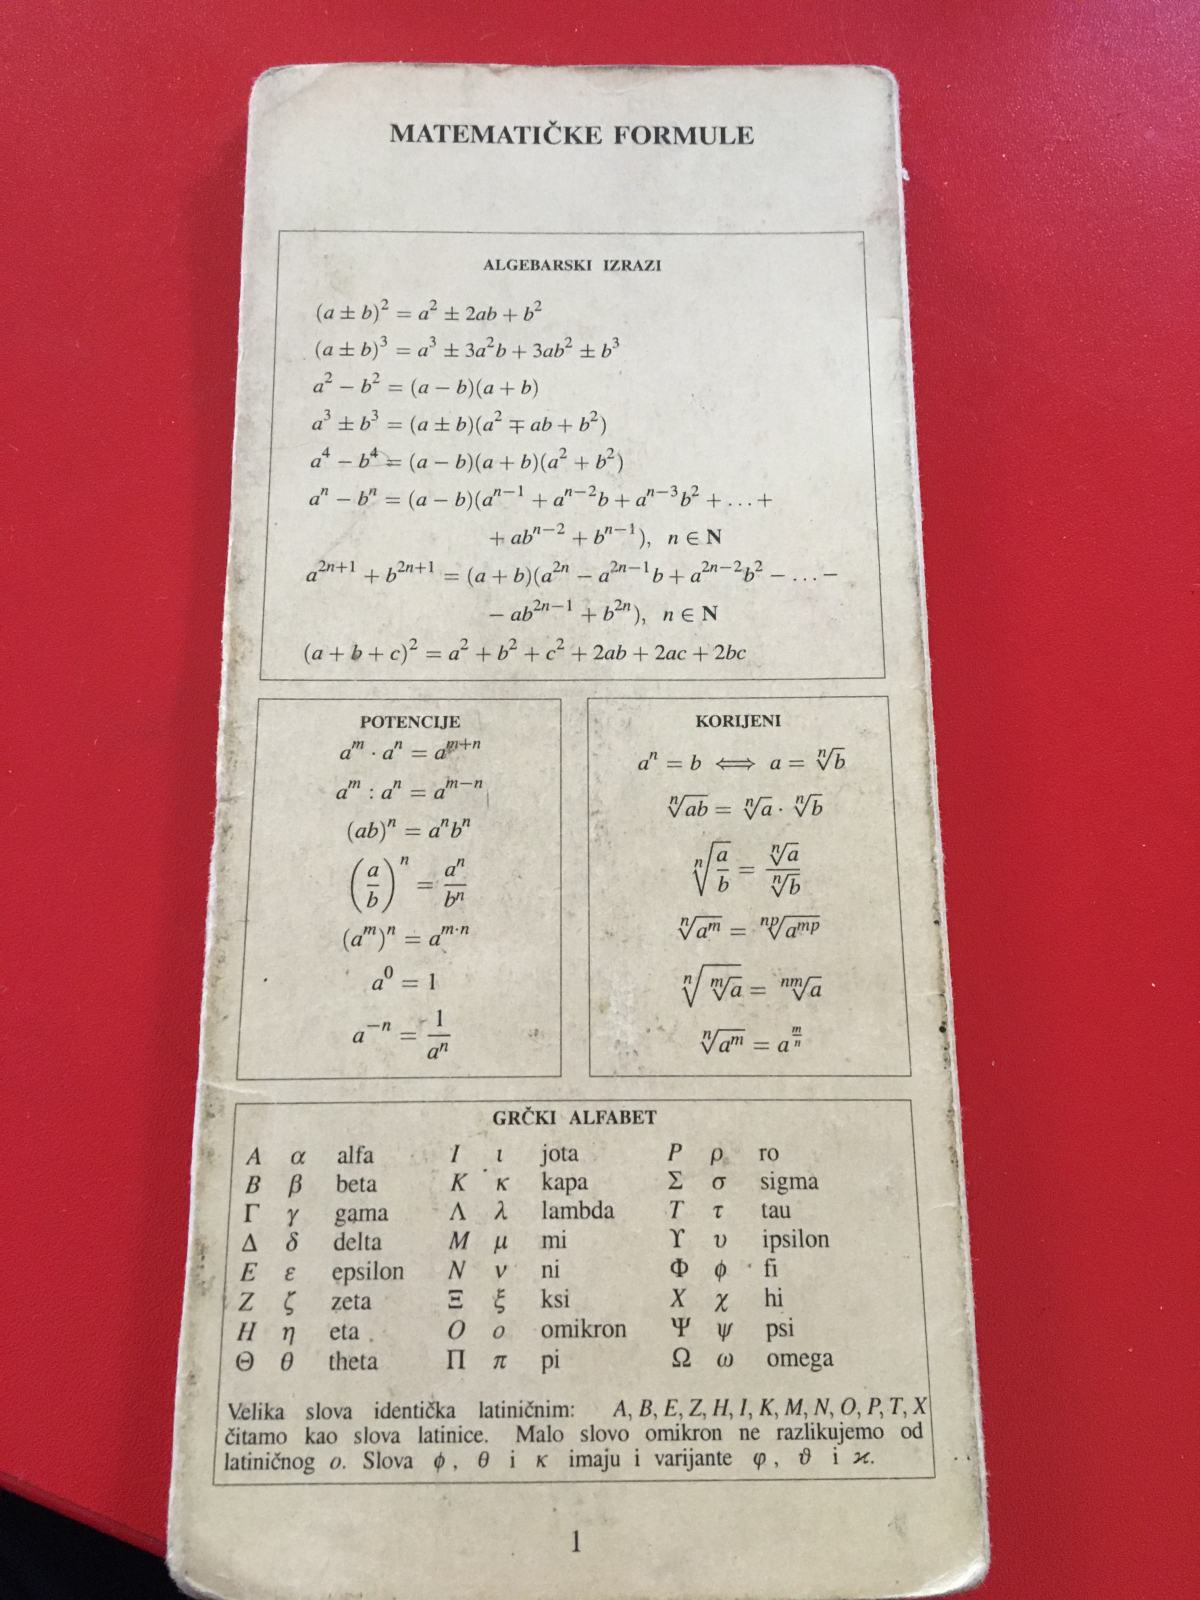 MATEMATIČKE FORMULE
ALGEBARSKI IZRAZI
(a ± b)² = a² ± 2ab + b²
(a ± b)³ = a³ ± 3a²b + 3ab² ± b³
a² − b² = (a − b)(a + b)
a³ ± b³ = (a ± b)(a² ∓ ab + b²)
a⁴ − b⁴ = (a − b)(a + b)(a² + b²)
aⁿ − bⁿ = (a − b)(aⁿ⁻¹ + aⁿ⁻²b + aⁿ⁻³b² + … +
+ abⁿ⁻² + bⁿ⁻¹), n ∈ N
a²ⁿ⁺¹ + b²ⁿ⁺¹ = (a + b)(a²ⁿ − a²ⁿ⁻¹b + a²ⁿ⁻²b² − … −
− ab²ⁿ⁻¹ + b²ⁿ), n ∈ N
(a + b + c)² = a² + b² + c² + 2ab + 2ac + 2bc
POTENCIJE
aᵐ · aⁿ = aᵐ⁺ⁿ
aᵐ : aⁿ = aᵐ⁻ⁿ
(ab)ⁿ = aⁿbⁿ
(a/b)ⁿ = aⁿ/bⁿ
(aᵐ)ⁿ = aᵐ·ⁿ
a⁰ = 1
a⁻ⁿ = 1/aⁿ
KORIJENI
aⁿ = b ⟺ a = ⁿ√b
ⁿ√(ab) = ⁿ√a · ⁿ√b
ⁿ√(a/b) = ⁿ√a / ⁿ√b
ⁿ√(aᵐ) = ⁿᵖ√(aᵐᵖ)
ⁿ√(ᵐ√a) = ⁿᵐ√a
ⁿ√(aᵐ) = a^(m/n)
GRČKI ALFABET
Α α alfa Ι ι jota Ρ ρ ro
Β β beta Κ κ kapa Σ σ sigma
Γ γ gama Λ λ lambda Τ τ tau
Δ δ delta Μ μ mi ϒ υ ipsilon
Ε ε epsilon Ν ν ni Φ ϕ fi
Ζ ζ zeta Ξ ξ ksi Χ χ hi
Η η eta Ο ο omikron Ψ ψ psi
Θ θ theta Π π pi Ω ω omega
Velika slova identička latiničnim: A, B, E, Z, H, I, K, M, N, O, P, T, X
čitamo kao slova latinice. Malo slovo omikron ne razlikujemo od
latiničnog o. Slova ϕ, θ i κ imaju i varijante φ, ϑ i ϰ.
1